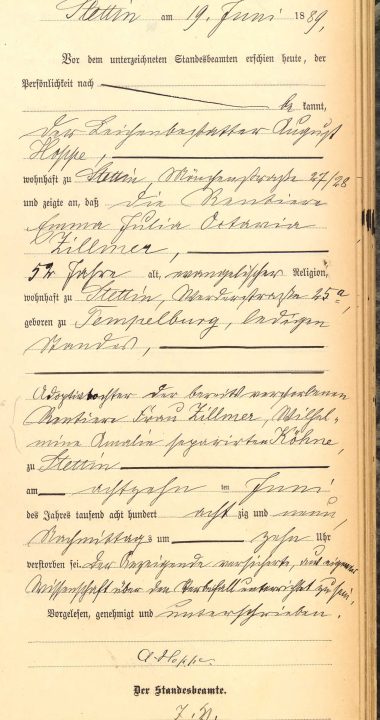 Stettin am 19. Juni 1889,
Vor dem unterzeichneten Standesbeamten erschien heute, der
Persönlichkeit nach
be kannt,
der Leichenbestatter August
Hoppe,
wohnhaft zu Stettin, Mönchenstraße 27/28
und zeigte an, daß die Rentiere
Emma Julia Octavia
Zillmer,
52 Jahre alt, evangelischer Religion,
wohnhaft zu Stettin, Werderstraße 25a,
geboren zu Tempelburg, ledigen
Standes,
Adoptivtochter der bereits verstorbenen
Rentiere Frau Zillmer, Wilhel-
mine Amalie separirten Köhne,
zu Stettin
am achtzehn ten Juni
des Jahres tausend acht hundert acht zig und neun,
Nachmittags um zehn Uhr
verstorben sei. Der Anzeigende versicherte, aus eigener
Wissenschaft über den Sterbefall unterrichtet zu sein.
Vorgelesen, genehmigt und unterschrieben.
A Hoppe.
Der Standesbeamte.